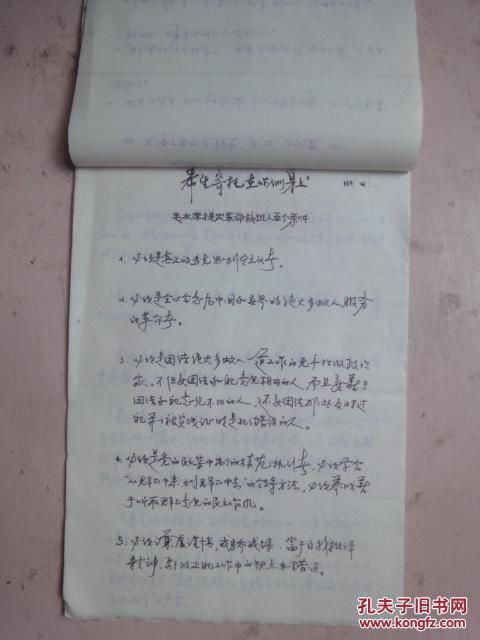 希望寄托在你们身上
毛主席提出革命接班人五个条件
1. 必须是真正的马克思列宁主义者。
2. 必须是全心全意为中国和世界的绝大多数人服务
的革命者。
3. 必须是团结绝大多数人一道工作的无产阶级政治
家。不但要团结和自己意见相同的人，而且要善于
团结和自己意见不同的人，还要团结那些反对过
自己并且被实践证明是犯了错误的人。
4. 必须是党的民主集中制的模范执行者，必须学会
"从群众中来，到群众中去"的领导方法，必须养成善
于听取群众意见的民主作风。
5. 必须谦虚谨慎，戒骄戒躁，富于自我批评
精神，勇于改正自己工作中的缺点和错误。
孔夫子旧书网
www.kongfz.com